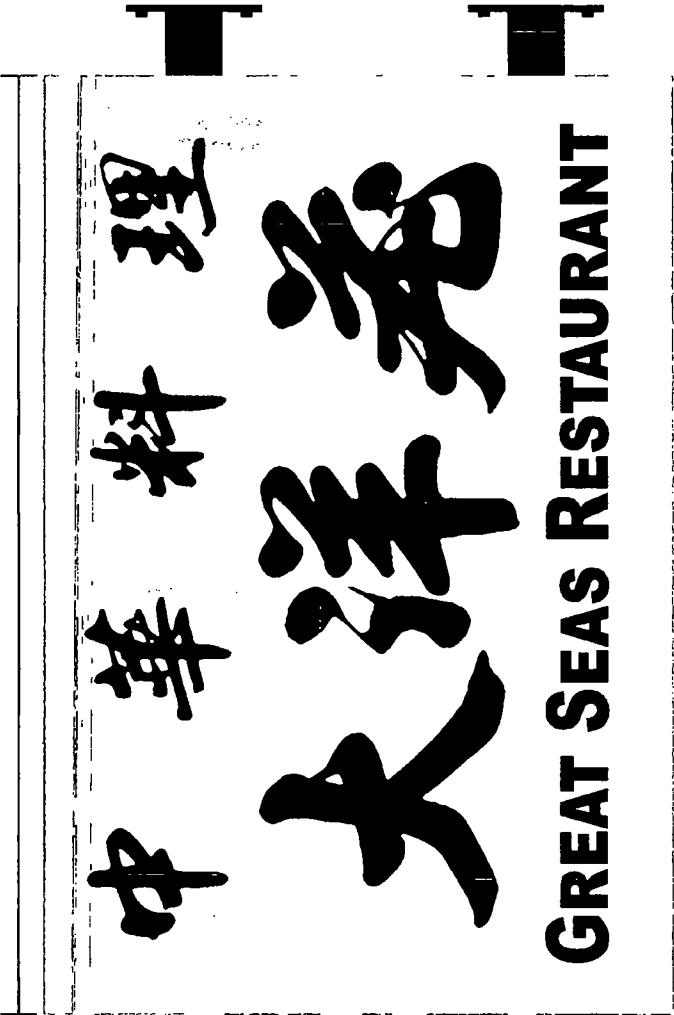 中華料理
大洋
GREAT SEAS RESTAURANT